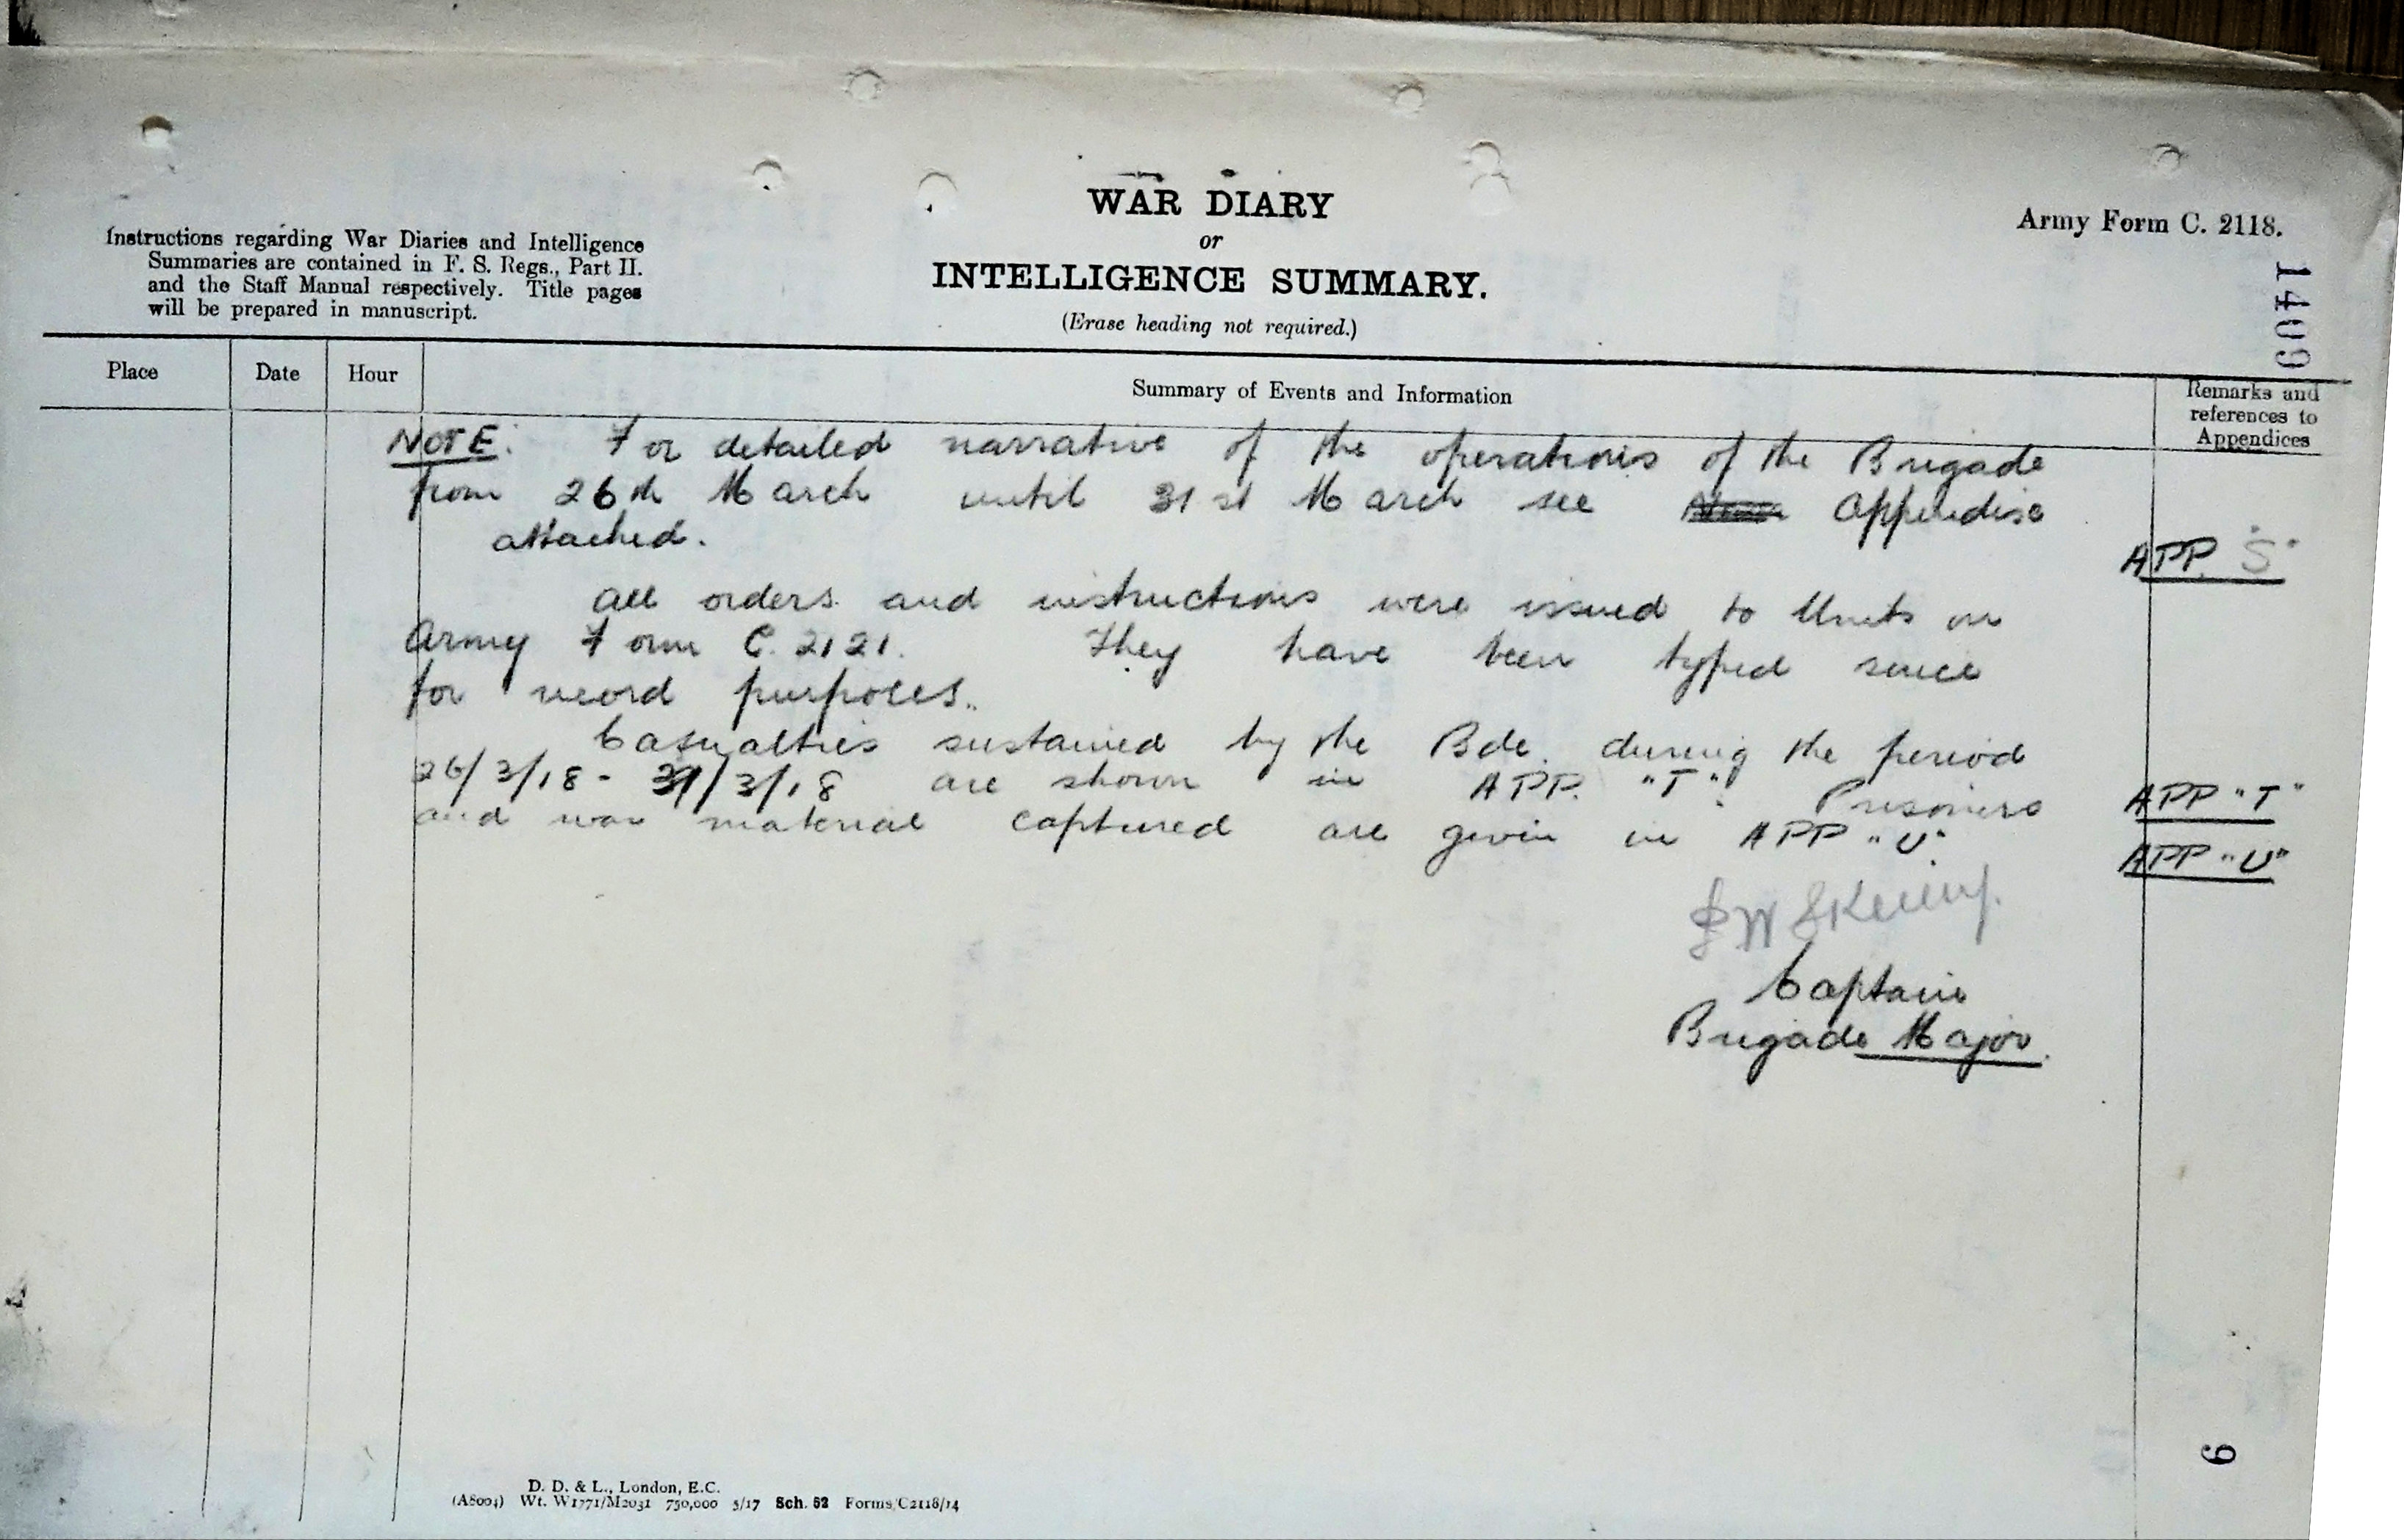 WAR DIARY
or
INTELLIGENCE SUMMARY.
(Erase heading not required.)
Army Form C. 2118.
1409
Instructions regarding War Diaries and Intelligence
Summaries are contained in F. S. Regs., Part II.
and the Staff Manual respectively. Title pages
will be prepared in manuscript.
Place
Date
Hour
Summary of Events and Information
Remarks and
references to
Appendices
NOTE: For detailed narrative of the operations of the Brigade
from 26th March until 31st March see Appendise
attached.
APP. "S"
All orders and instructions were issued to Units on
Army Form C. 2121. They have been typed since
for record purposes.
Casualties sustained by the Bde. during the period
26/3/18 - 31/3/18 are shown in APP. "T". Prisoners
APP "T"
and war material captured are given in APP "U".
APP "U"
Captain
Brigade Major.
6
D. D. & L., London, E.C.
(A8004) Wt. W1771/M2031 750,000 5/17 Sch. 52 Forms/C2118/14